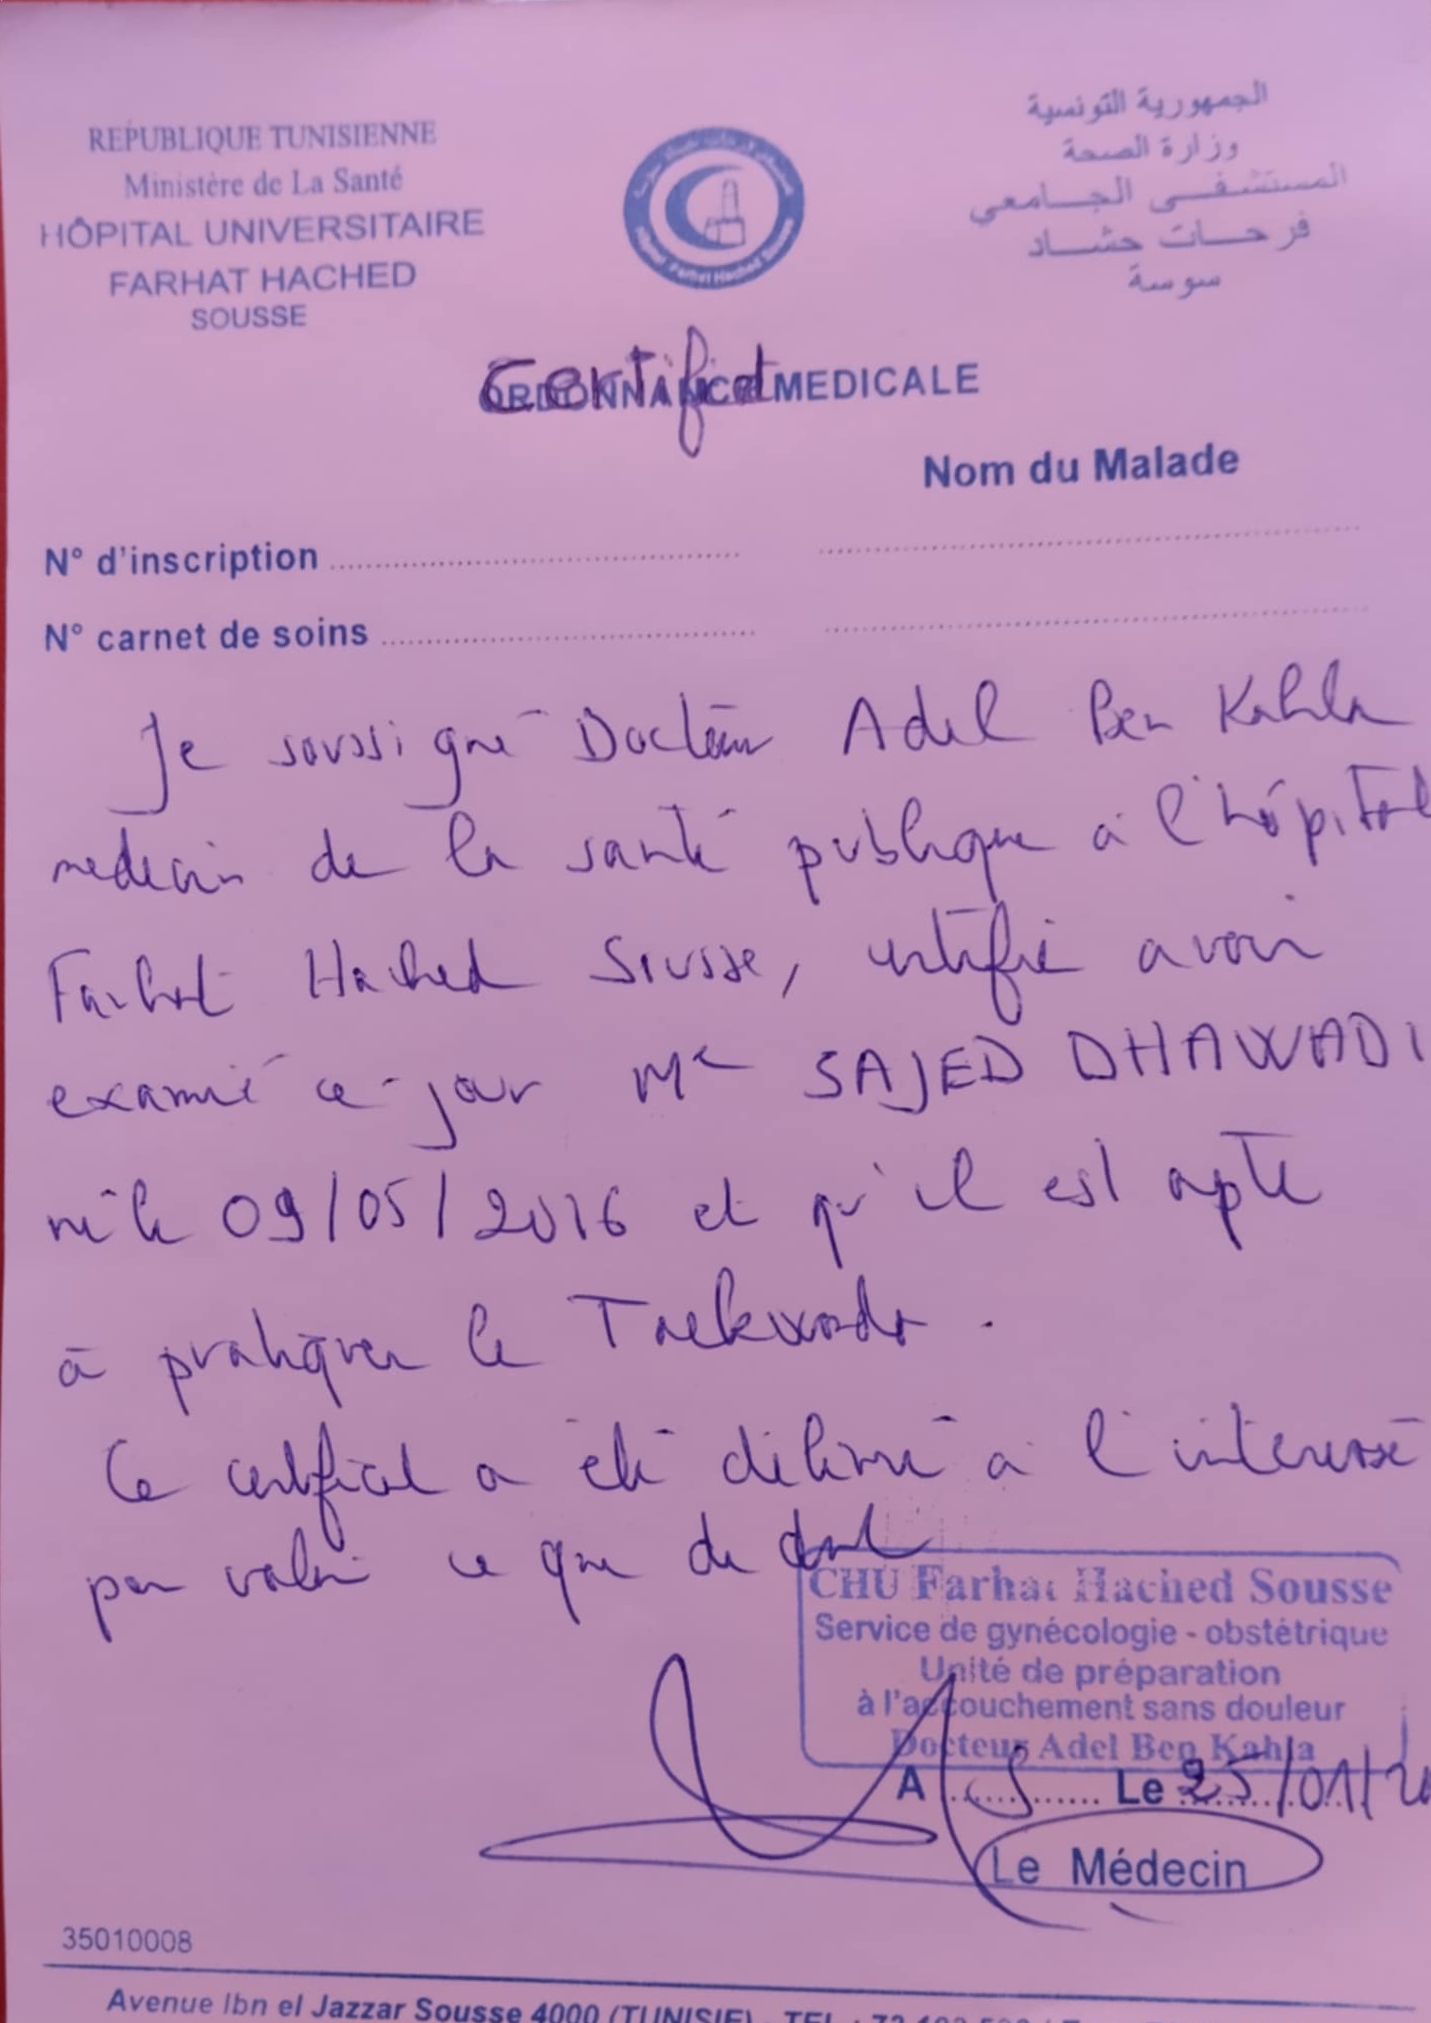 REPUBLIQUE TUNISIENNE
Ministère de La Santé
HÔPITAL UNIVERSITAIRE
FARHAT HACHED
SOUSSE
الجمهورية التونسية
وزارة الصحة
المستشفى الجامعي
فرحات حشاد
سوسة
Certificat MEDICALE
Nom du Malade
N° d'inscription
N° carnet de soins
Je soussigné Docteur Adel Ben Kahla
medecin de la santé publique à l'hôpital
Farhat Hached Sousse, certifie avoir
examiné ce jour Mr SAJED DHAWADI
né le 09/05/2016 et qu'il est apte
à pratiquer le Taekwondo.
Ce certificat a été délivré à l'interessé
pour valoir ce que de droit
CHU Farhat Hached Sousse
Service de gynécologie - obstétrique
Unité de préparation
à l'accouchement sans douleur
Docteur Adel Ben Kahla
A S Le 25/01/2
Le Médecin
35010008
Avenue Ibn el Jazzar Sousse 4000 (TUNISIE) - TEL :